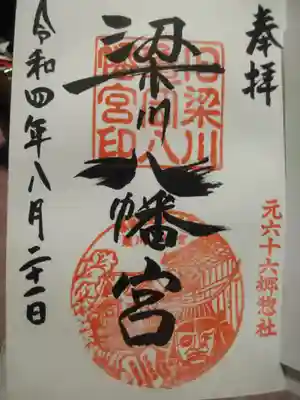 奉拝
元六十六郷惣社
梁川八幡宮
令和四年八月二十一日